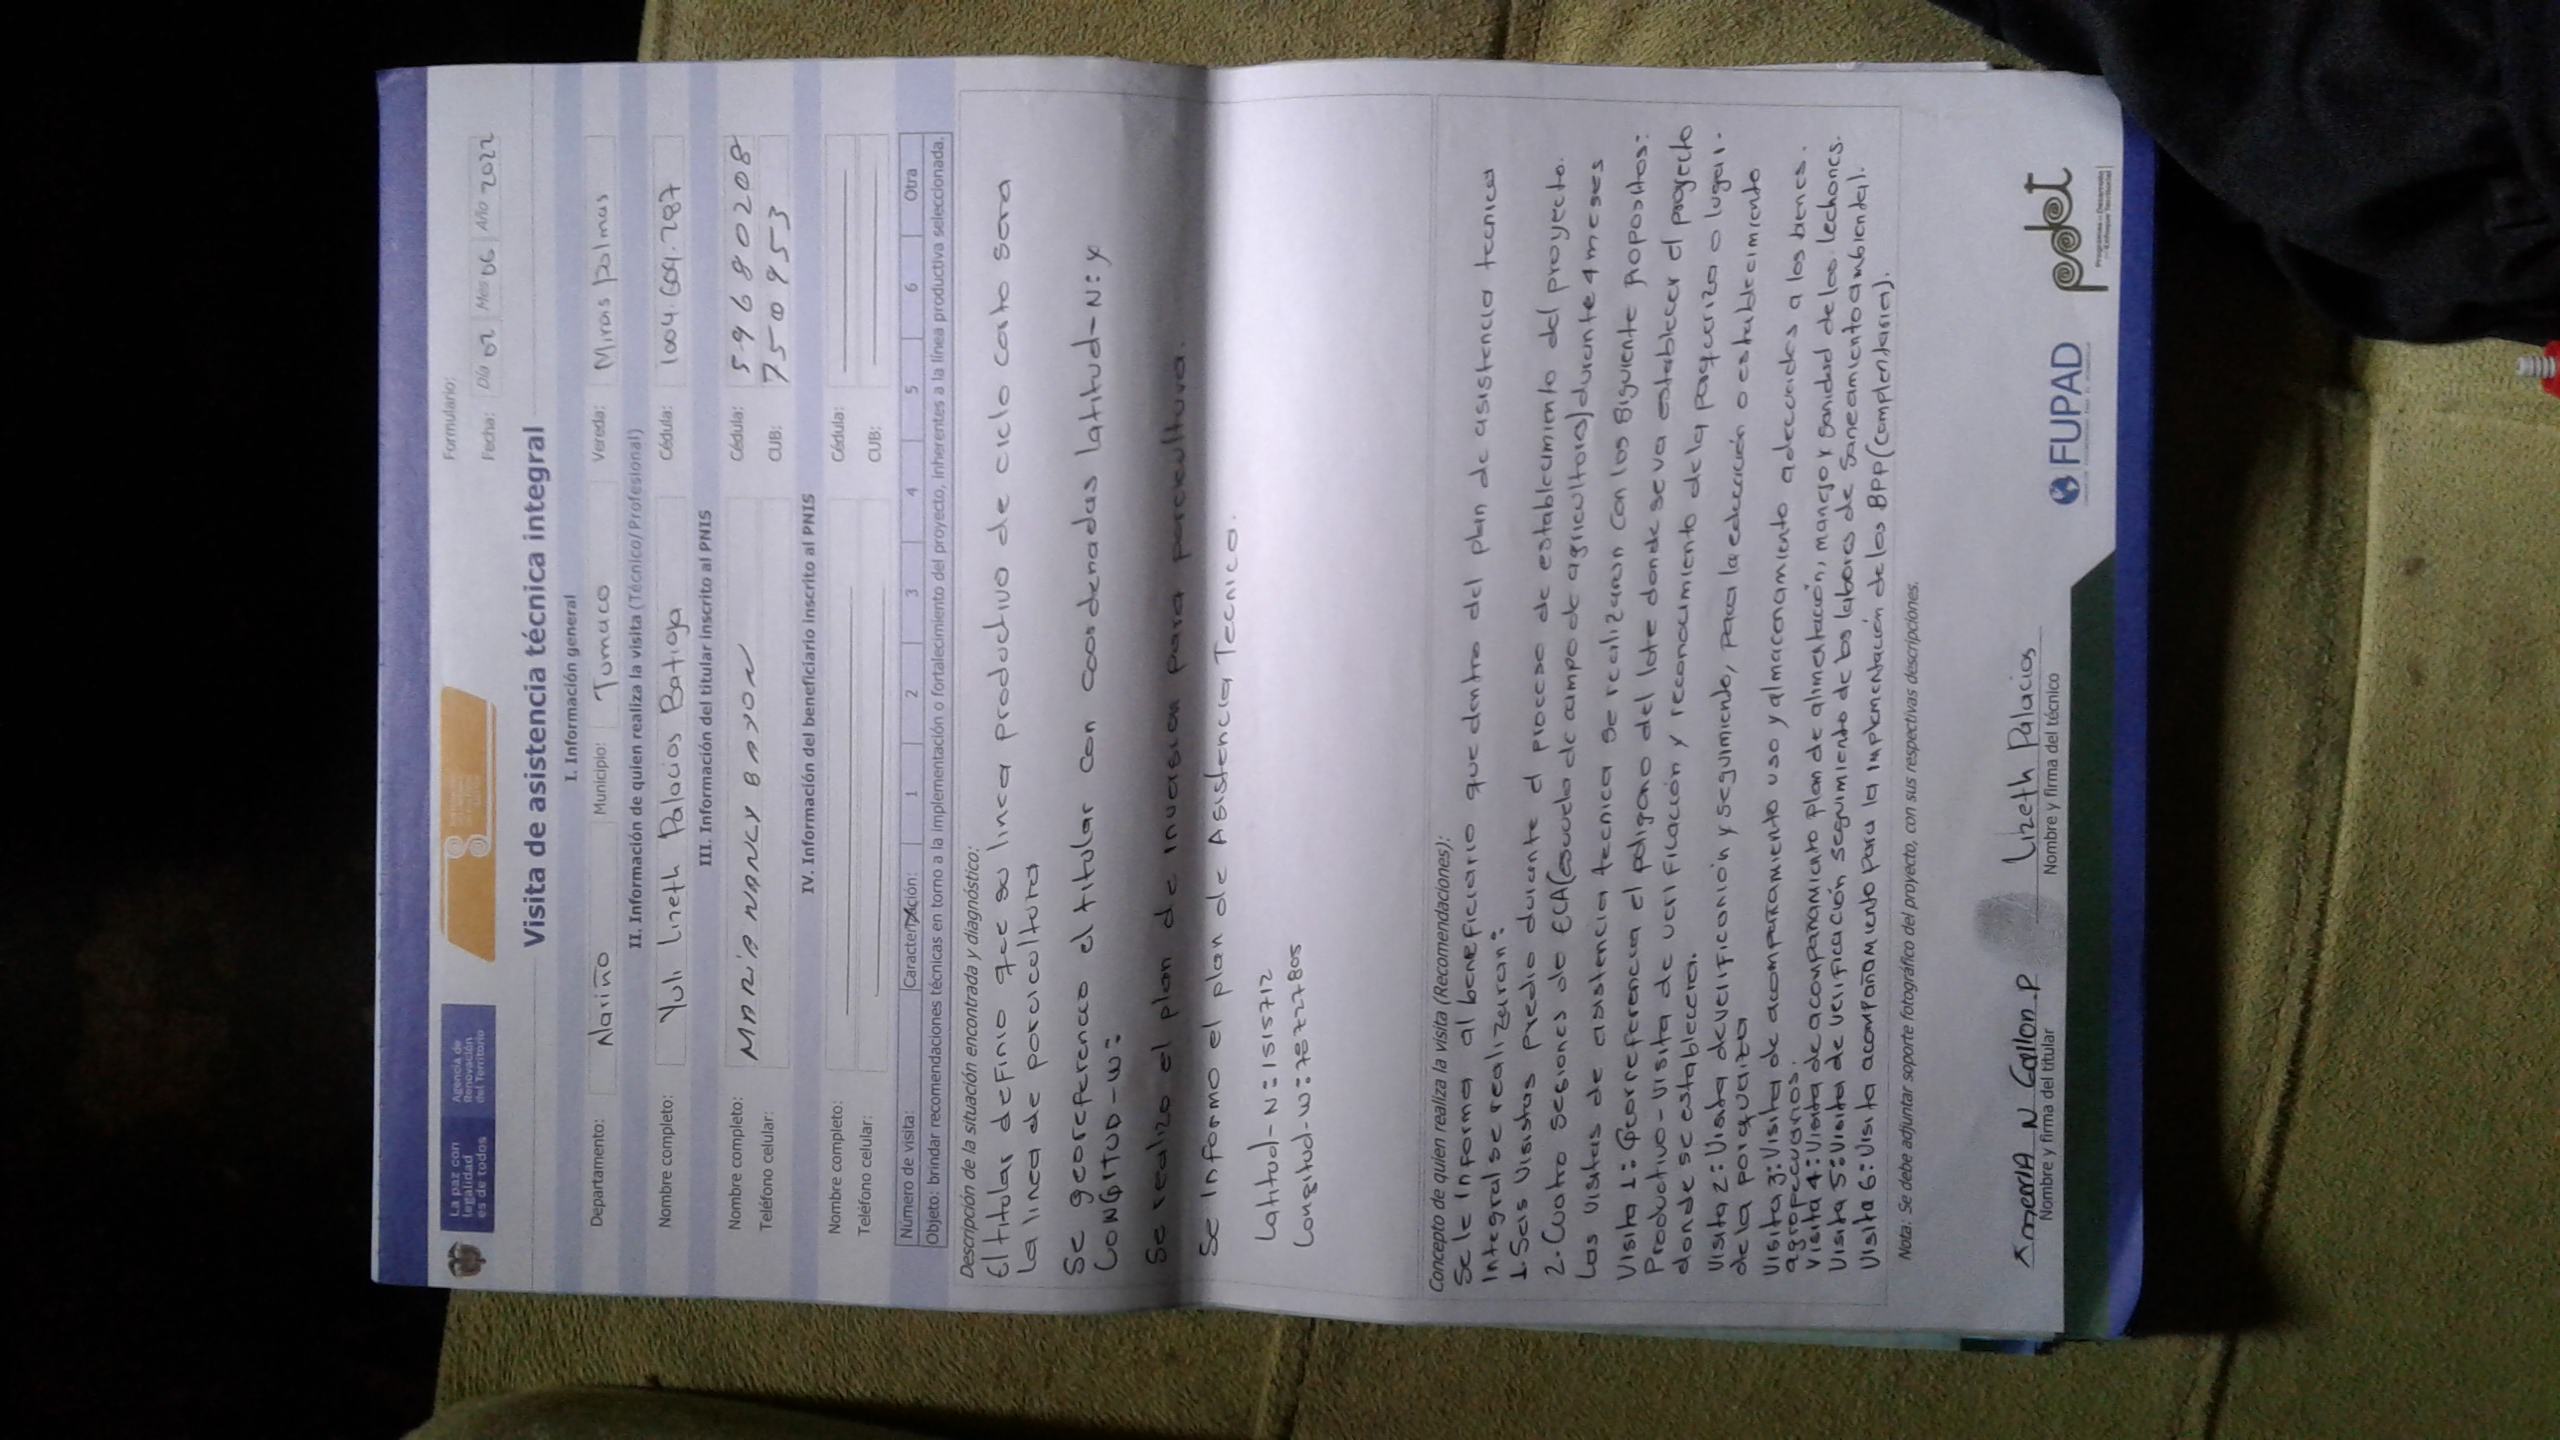 La paz con legalidad es de todos
Agencia de Renovación del Territorio
Formulario:
Fecha: Día 02 Mes 06 Año 2022
Visita de asistencia técnica integral
I. Información general
Departamento: Nariño Municipio: Tumaco Vereda: Miras palmas
II. Información de quien realiza la visita (Técnico/Profesional)
Nombre completo: Yuli Lizeth Palacios Batioja Cédula: 1004.609.287
III. Información del titular inscrito al PNIS
Nombre completo: MARIA NANCY BAYON Cédula: 59680208
Teléfono celular: CUB: 7500953
IV. Información del beneficiario inscrito al PNIS
Nombre completo: Cédula:
Teléfono celular: CUB:
Número de visita: Caracterización: 1 2 3 4 5 6 Otra
Objeto: brindar recomendaciones técnicas en torno a la implementación o fortalecimiento del proyecto, inherentes a la línea productiva seleccionada.
Descripción de la situación encontrada y diagnóstico:
El titular definio qee su linea productivo de ciclo corto sera
La linea de porcicultura
Se georeferencao el titular con coordenadas latitud-N: y
LONGITUD-W:
Se realizo el plan de inversion para porcicultura.
Se informo el plan de Asistencia Tecnica.
Latitud-N:1515712
Longitud-W:
Concepto de quien realiza la visita (Recomendaciones):
Se le informa al beneficiario que dentro del plan de asistencia tecnica
Integral se realizaran:
1. Seis visistas predio durante el proceso de establecimiento del proyecto.
2. Cuatro sesiones de ECA(escuela de campo de agricultora) durante 4 meses
Las visitas de asistencia tecnica se realizaran con los siguiente propositos:
Visita 1: Georreferencia el poligano del lote donde se va establecer el proyecto
Productivo-visita de verificación y reconocimiento de la porqueriza o lugar.
donde se establecera.
Visita 2: Visita de verificonión y seguimiento, para la edecución o establecimiento
de la porqueriza
Visita 3: Visita de acompañamiento uso y almacenamiento adecuados a los bienes.
agropecuarios.
Visita 4: Visita de acompañamiento plan de alimentación, manejo y sanidad de los lechones.
Visita 5: Visita de verificación seguimiento de las labores de saneamiento ambiental.
Visita 6: Visita acompañamiento para la implementación de las BPP(complentaria).
Nota: Se debe adjuntar soporte fotográfico del proyecto, con sus respectivas descripciones.
N Gallon.P Lizeth Palacios
Nombre y firma del titular Nombre y firma del técnico
FUPAD
pdet
Programas de Desarrollo con Enfoque Territorial